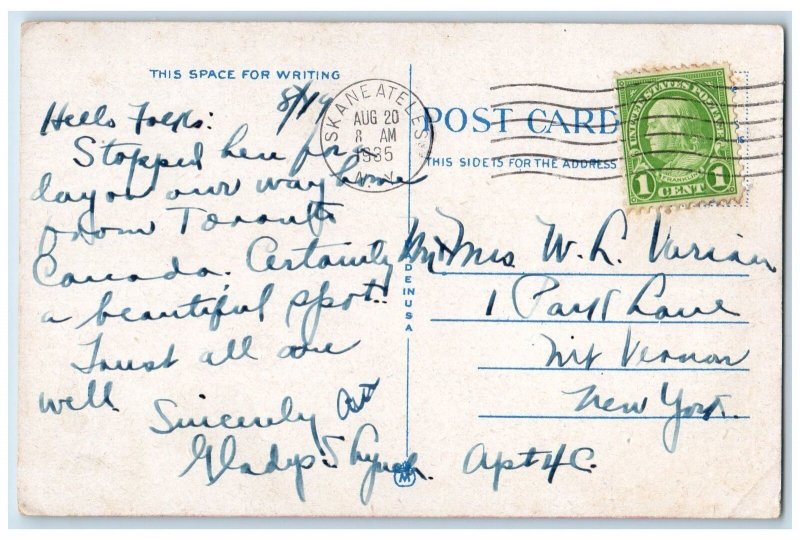 THIS SPACE FOR WRITING
8/19
Hello Folks:
Stopped here for a
day on our way home
from Toronto
Canada. Certainly
a beautiful spot.
Trust all are
well.
Sincerely
Gladys
SKANEATELES
AUG 20
8 AM
1935
N.Y.
POST CARD
THIS SIDE IS FOR THE ADDRESS
UNITED STATES POSTAGE
FRANKLIN
1 CENT 1
MADE IN USA
M
Mr + Mrs W. L. Varian
1 Park Lane
Mt Vernon
New York.
Apt 4C.